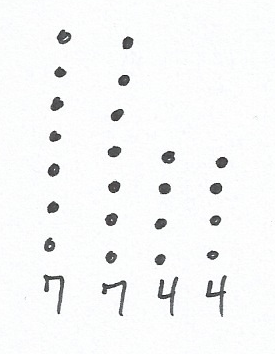 7 7 4 4